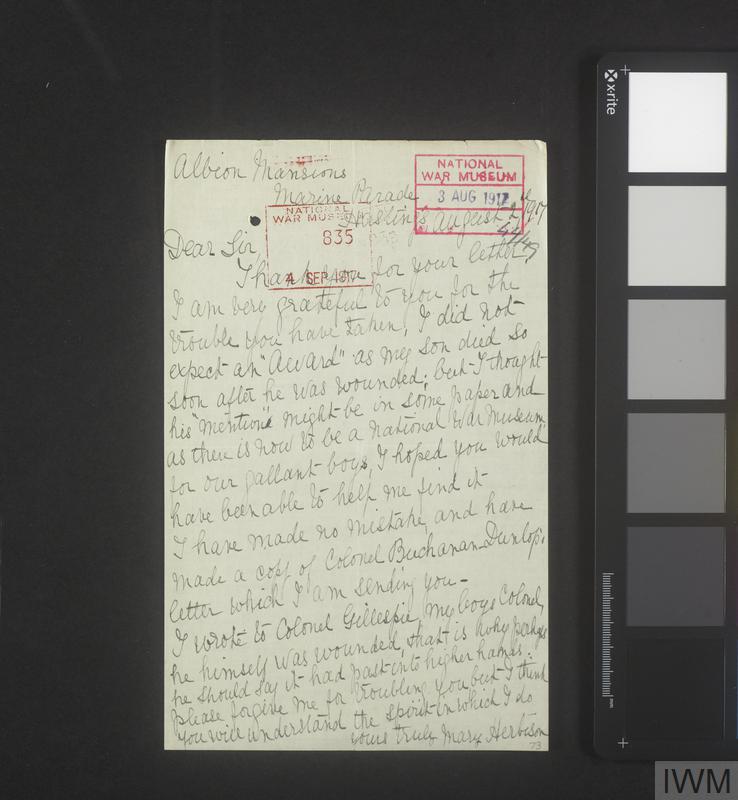 Albion Mansions
Marine Parade
Hastings August 2nd 1917
NATIONAL
WAR MUSEUM
3 AUG 1917
NATIONAL
WAR MUSEUM
835
4 SEP 1917
Dear Sir,
Thank you for your letter,
I am very grateful to you for the
trouble you have taken, I did not
expect an "Award" as my son died so
soon after he was wounded; but I thought
his "mention" might be in some paper and
as there is now to be a National War Museum
for our gallant boys, I hoped you would
have been able to help me find it
I have made no mistake, and have
made a copy of Colonel Buchanan-Dunlop's
letter which I am sending you -
I wrote to Colonel Gillespie, my boys Colonel,
he himself was wounded, that is why perhaps
he should say it had past into higher hands.
Please forgive me for troubling you but I think
you will understand the spirit in which I do
yours truly Mary Herbison
73
x-rite
mm
IWM